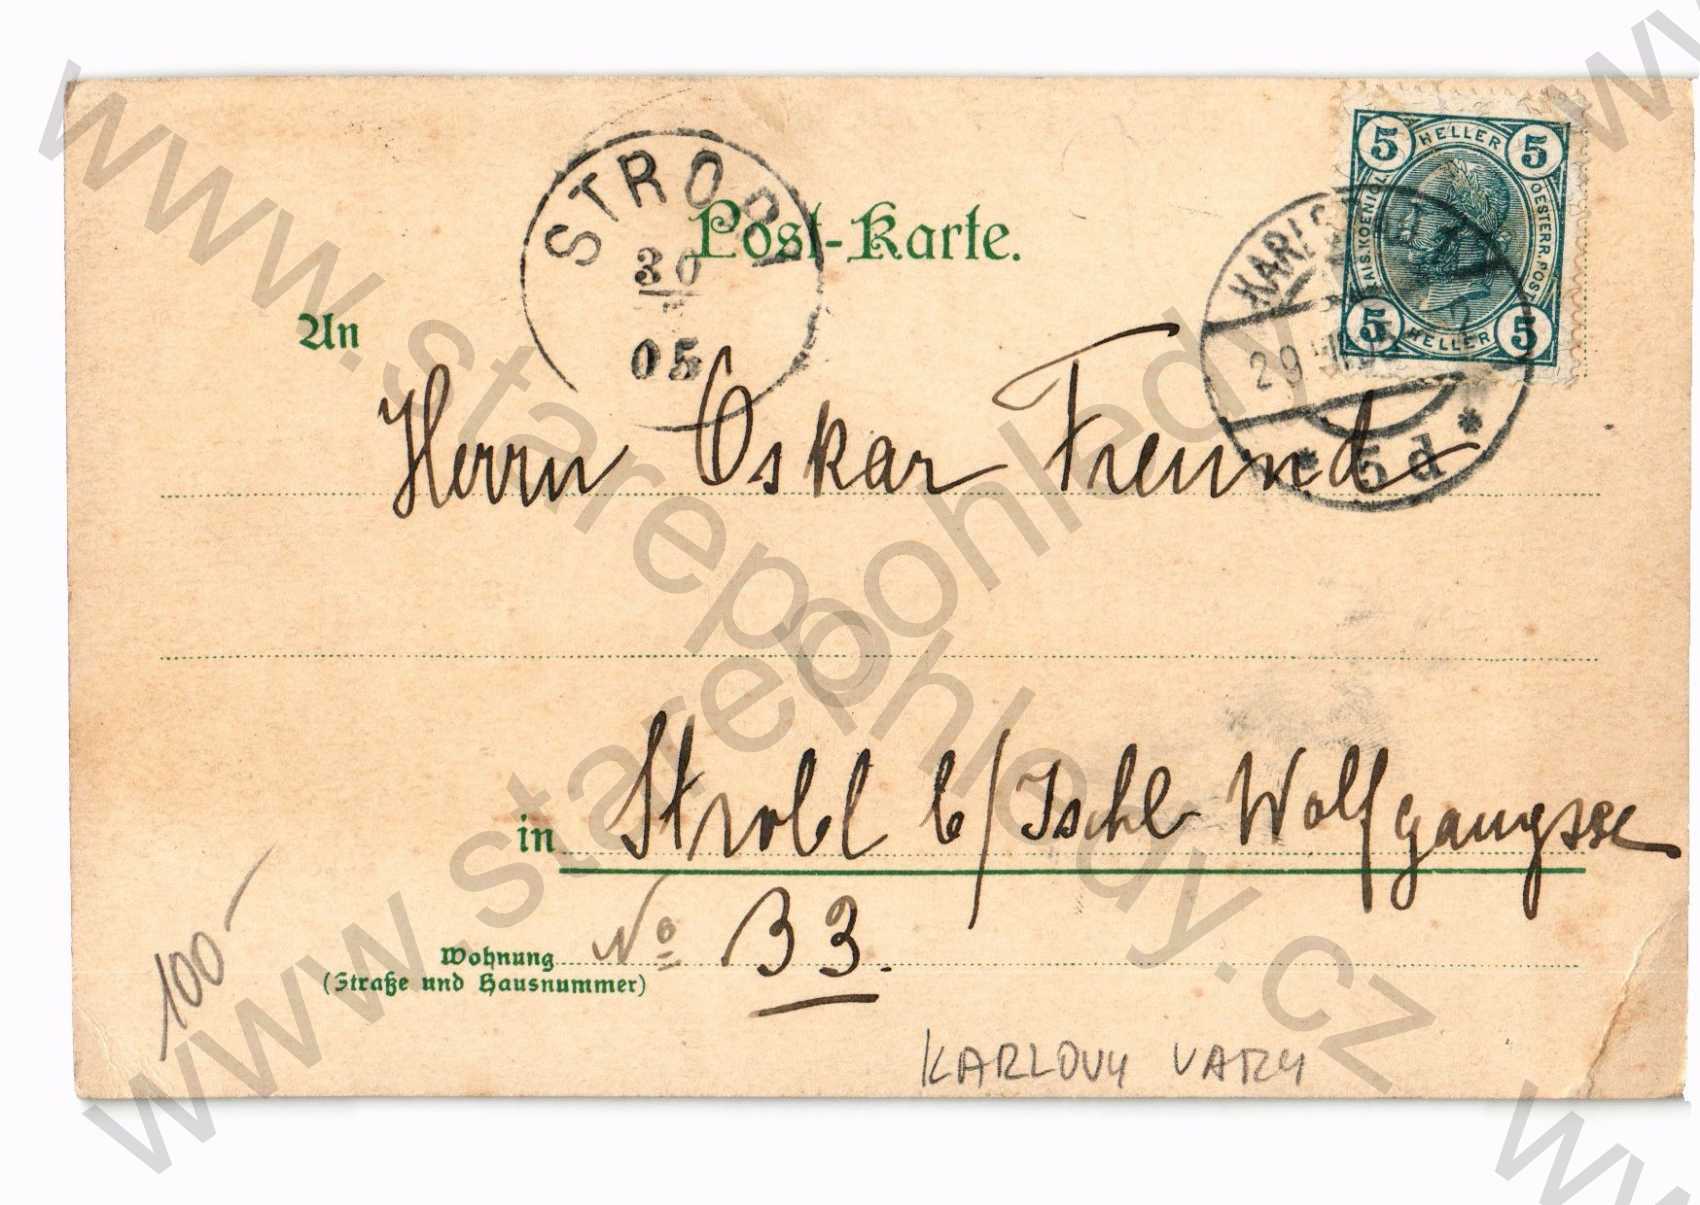 5 HELLER 5
KAIS. KOENIGL. OESTERR. POST
5 HELLER 5
STROBL
30
05
29
* 5 d *
Post-Karte.
An
Herrn Oskar Freund
in Strobl b/Ischl Wolfgangsee
Wohnung No 33.
(Straße und Hausnummer)
100-
KARLOVY VARY
www.starepohledy.cz
www.starepohledy.cz